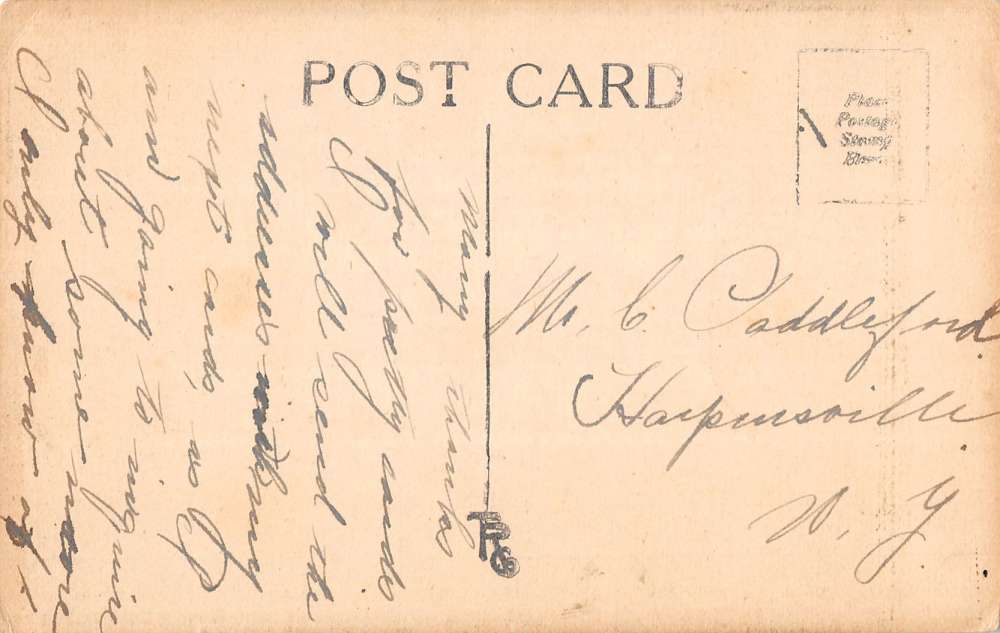 POST CARD
Place
Postage
Stamp
Here
many thanks
for pretty cards
I will send the
addresses with my
next cards, as I
am going to inquire
about some more
I only know of
Mr. C. Paddleford
Harpursville
N. Y.